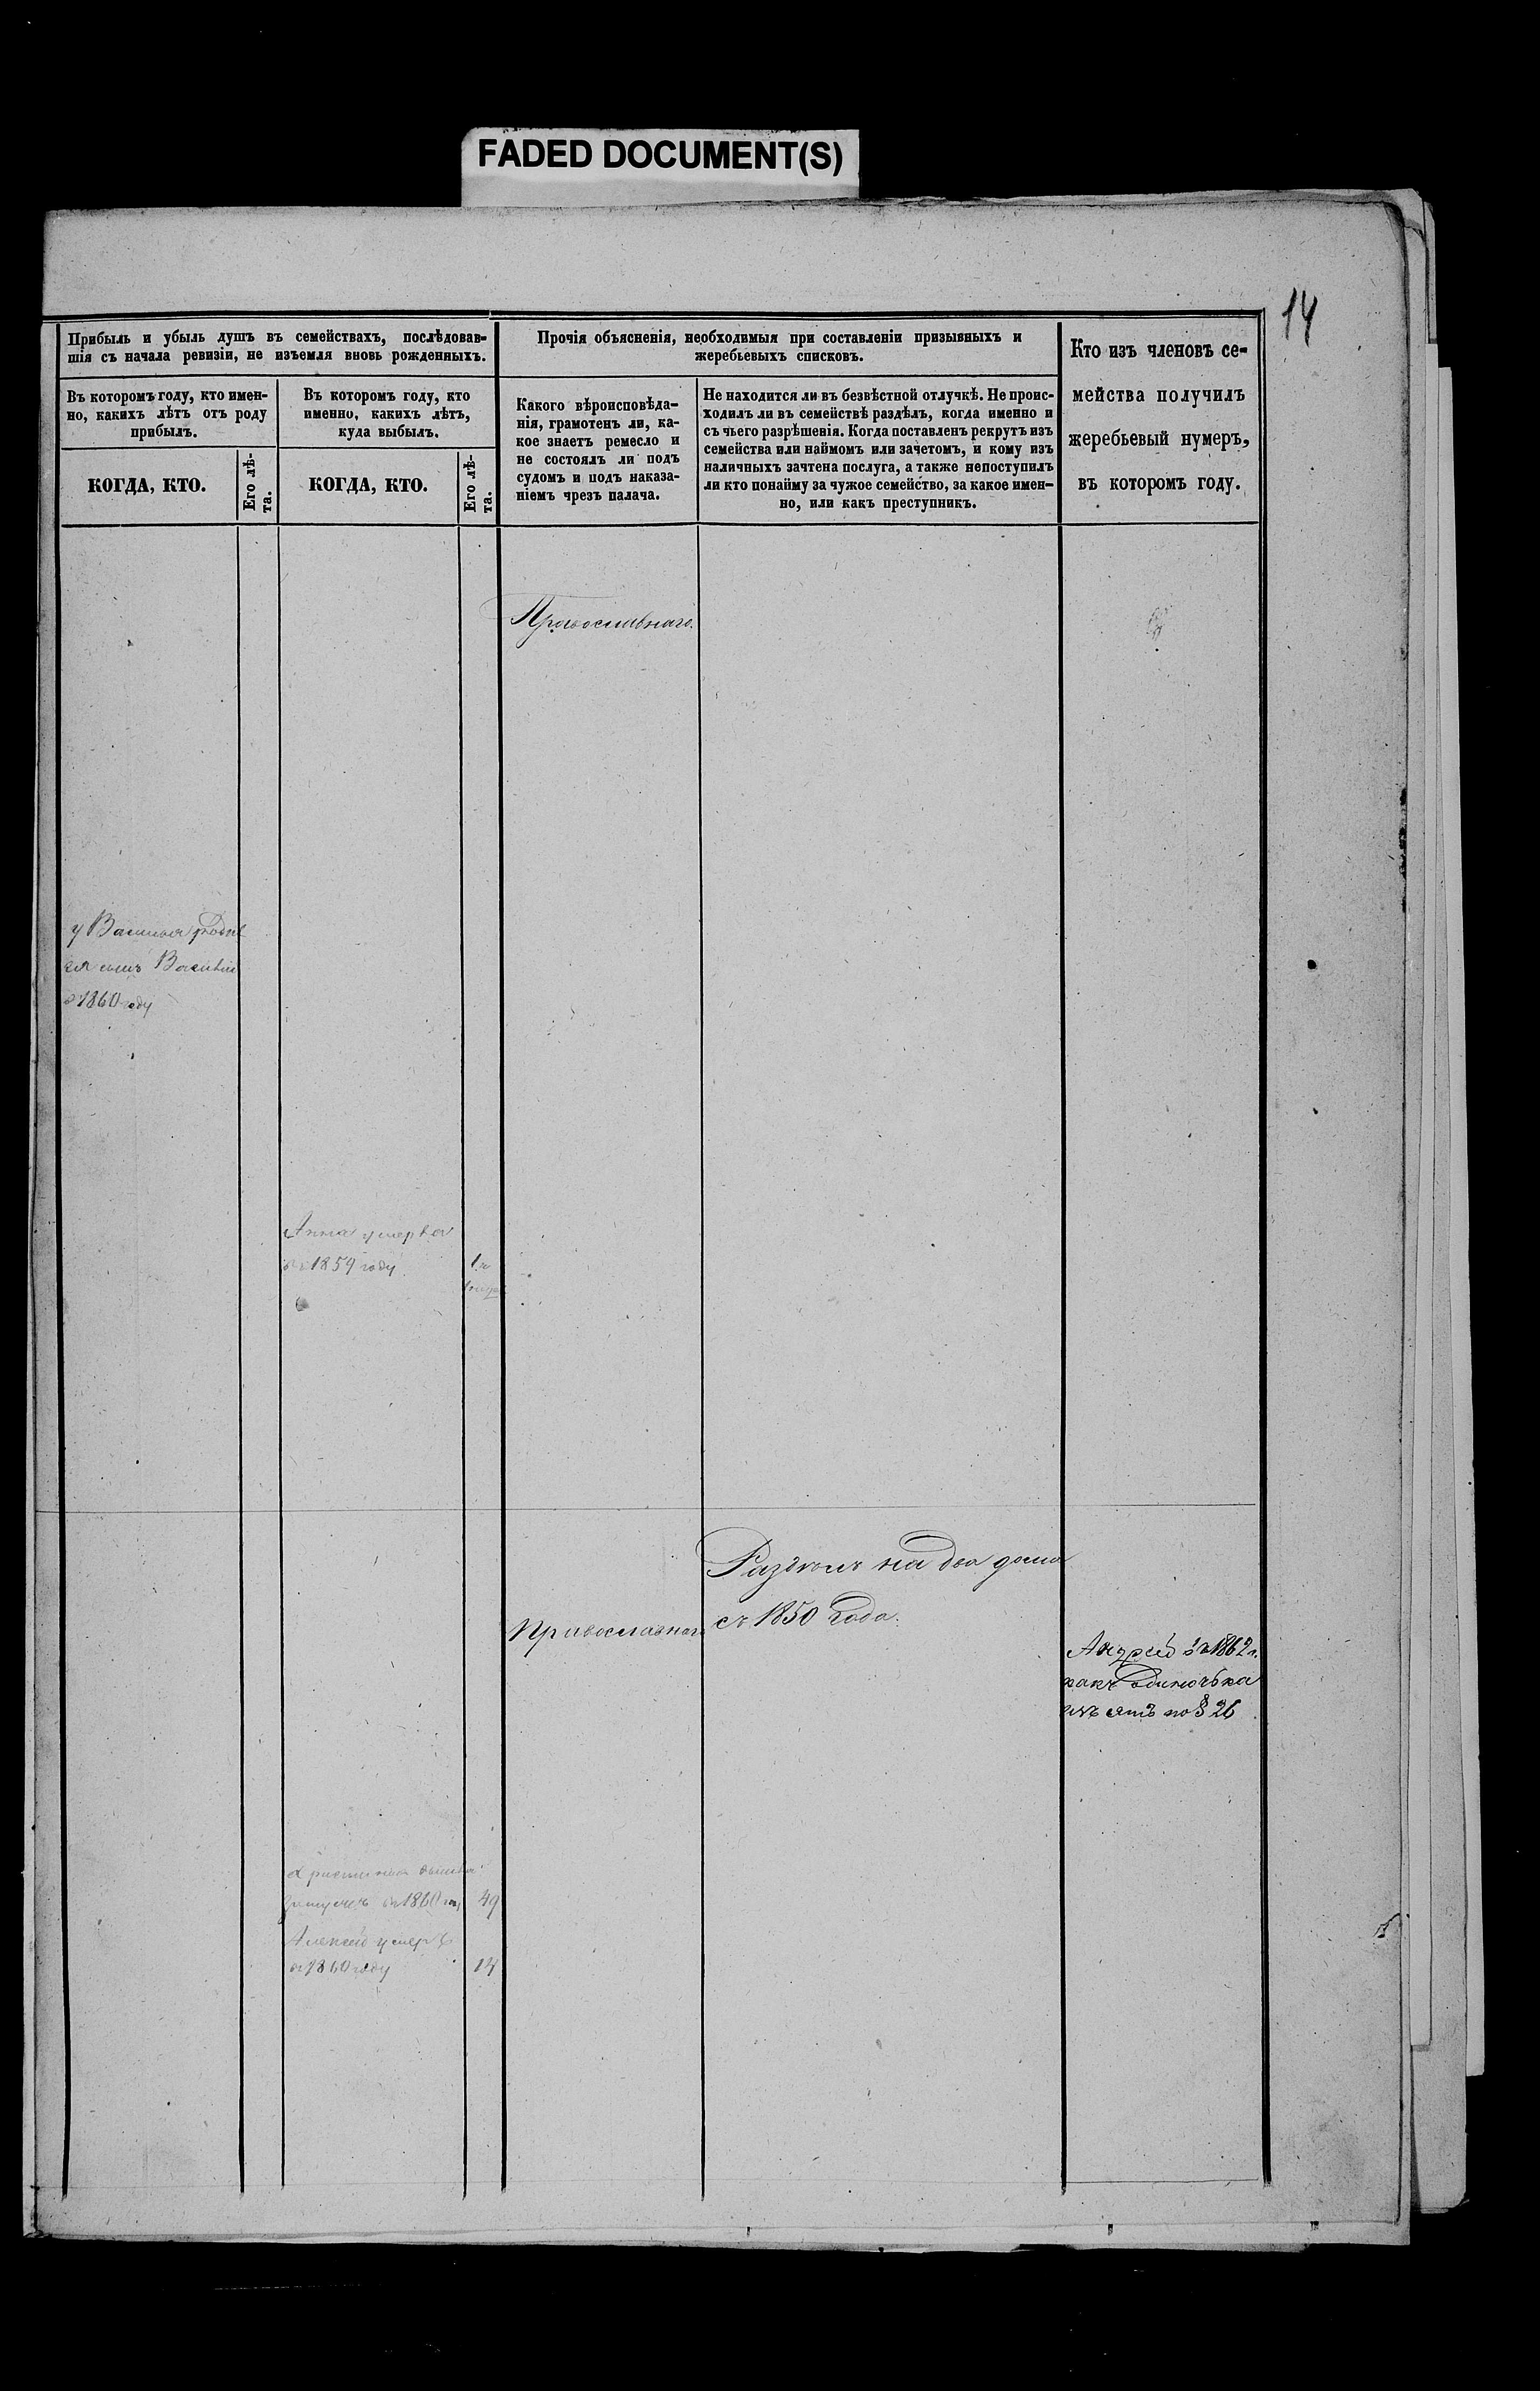 FADED DOCUMENT(S)
14
Прибыль и убыль душъ въ семействахъ, послѣдовав-
шія съ начала ревизіи, не изъемля вновь рожденныхъ.
Въ которомъ году, кто имен-
но, какихъ лѣтъ отъ роду
прибылъ.
КОГДА, КТО.
Его лѣ-
та.
Въ которомъ году, кто
именно, какихъ лѣтъ,
куда выбылъ.
КОГДА, КТО.
Его лѣ-
та.
Прочія объясненія, необходимыя при составленіи призывныхъ и
жеребьевыхъ списковъ.
Какого вѣроисповѣда-
нія, грамотенъ ли, ка-
кое знаетъ ремесло и
не состоялъ ли подъ
судомъ и подъ наказа-
ніемъ чрезъ палача.
Не находится ли въ безвѣстной отлучкѣ. Не проис-
ходилъ ли въ семействѣ раздѣлъ, когда именно и
съ чьего разрѣшенія. Когда поставленъ рекрутъ изъ
семейства или наймомъ или зачетомъ, и кому изъ
наличныхъ зачтена послуга, а также непоступилъ
ли кто понайму за чужое семейство, за какое имен-
но, или какъ преступникъ.
Кто изъ членовъ се-
мейства получилъ
жеребьевый нумеръ,
въ которомъ году.
Православнаго.
у Василья родил
ся сынъ Василий
в 1860 году
Анна умерла
въ 1859 году
Раздѣлъ на два дома
съ 1850 года.
Православнаго
Андрей въ 1862 г.
какъ одиночька
изъятъ по § 26
замужъ въ 1860 году 49
Алексей умеръ
в 1860 году 14